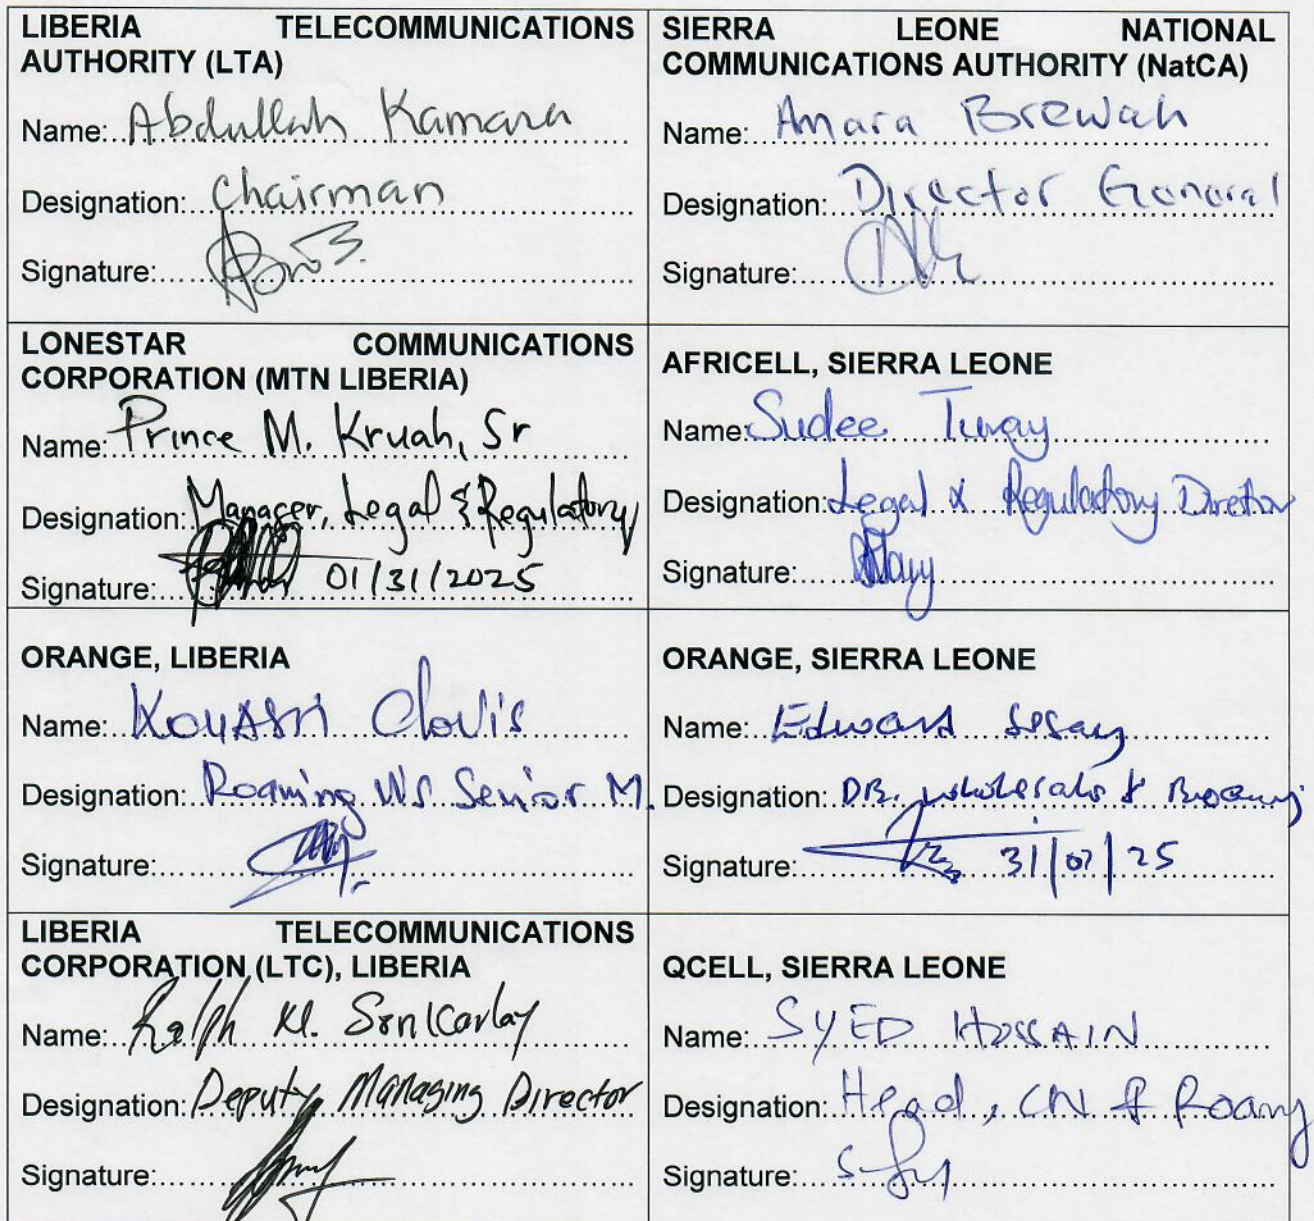 LIBERIA TELECOMMUNICATIONS
AUTHORITY (LTA)
Name: Abdullah Kamara
Designation: Chairman
Signature:
SIERRA LEONE NATIONAL
COMMUNICATIONS AUTHORITY (NatCA)
Name: Amara Brewah
Designation: Director General
Signature:
LONESTAR COMMUNICATIONS
CORPORATION (MTN LIBERIA)
Name: Prince M. Kruah, Sr
Designation: Manager, Legal & Regulatory
Signature: 01/31/2025
AFRICELL, SIERRA LEONE
Name: Sudee Turay
Designation: Legal & Regulatory Director
Signature:
ORANGE, LIBERIA
Name: Clovis
Designation: Roaming WS Senior M.
Signature:
ORANGE, SIERRA LEONE
Name: Edward Sesay
Designation: DR. Wholesale &
Signature: 31/01/25
LIBERIA TELECOMMUNICATIONS
CORPORATION (LTC), LIBERIA
Name: Ralph
Designation: Deputy Managing Director
Signature:
QCELL, SIERRA LEONE
Name: SYED HOSSAIN
Designation: Head, CN & Roamg
Signature: